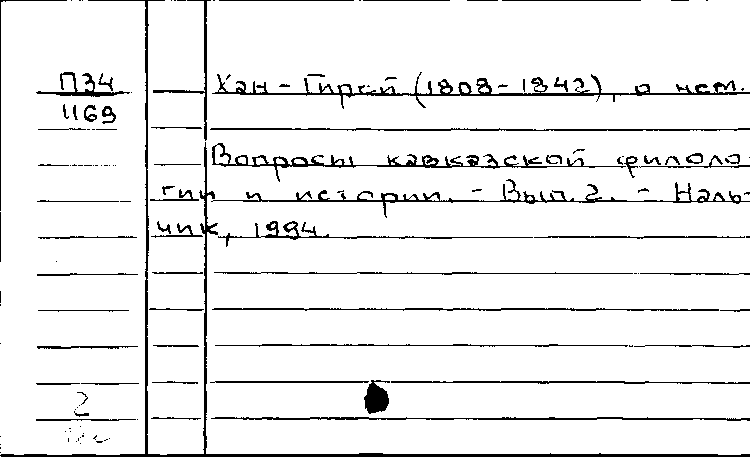 П34
1169
Хан-Гирей (1808-1842), о нем.
Вопросы кавказской филоло-
гии и истории. - Вып. 2. - Наль-
чик, 1994.
2